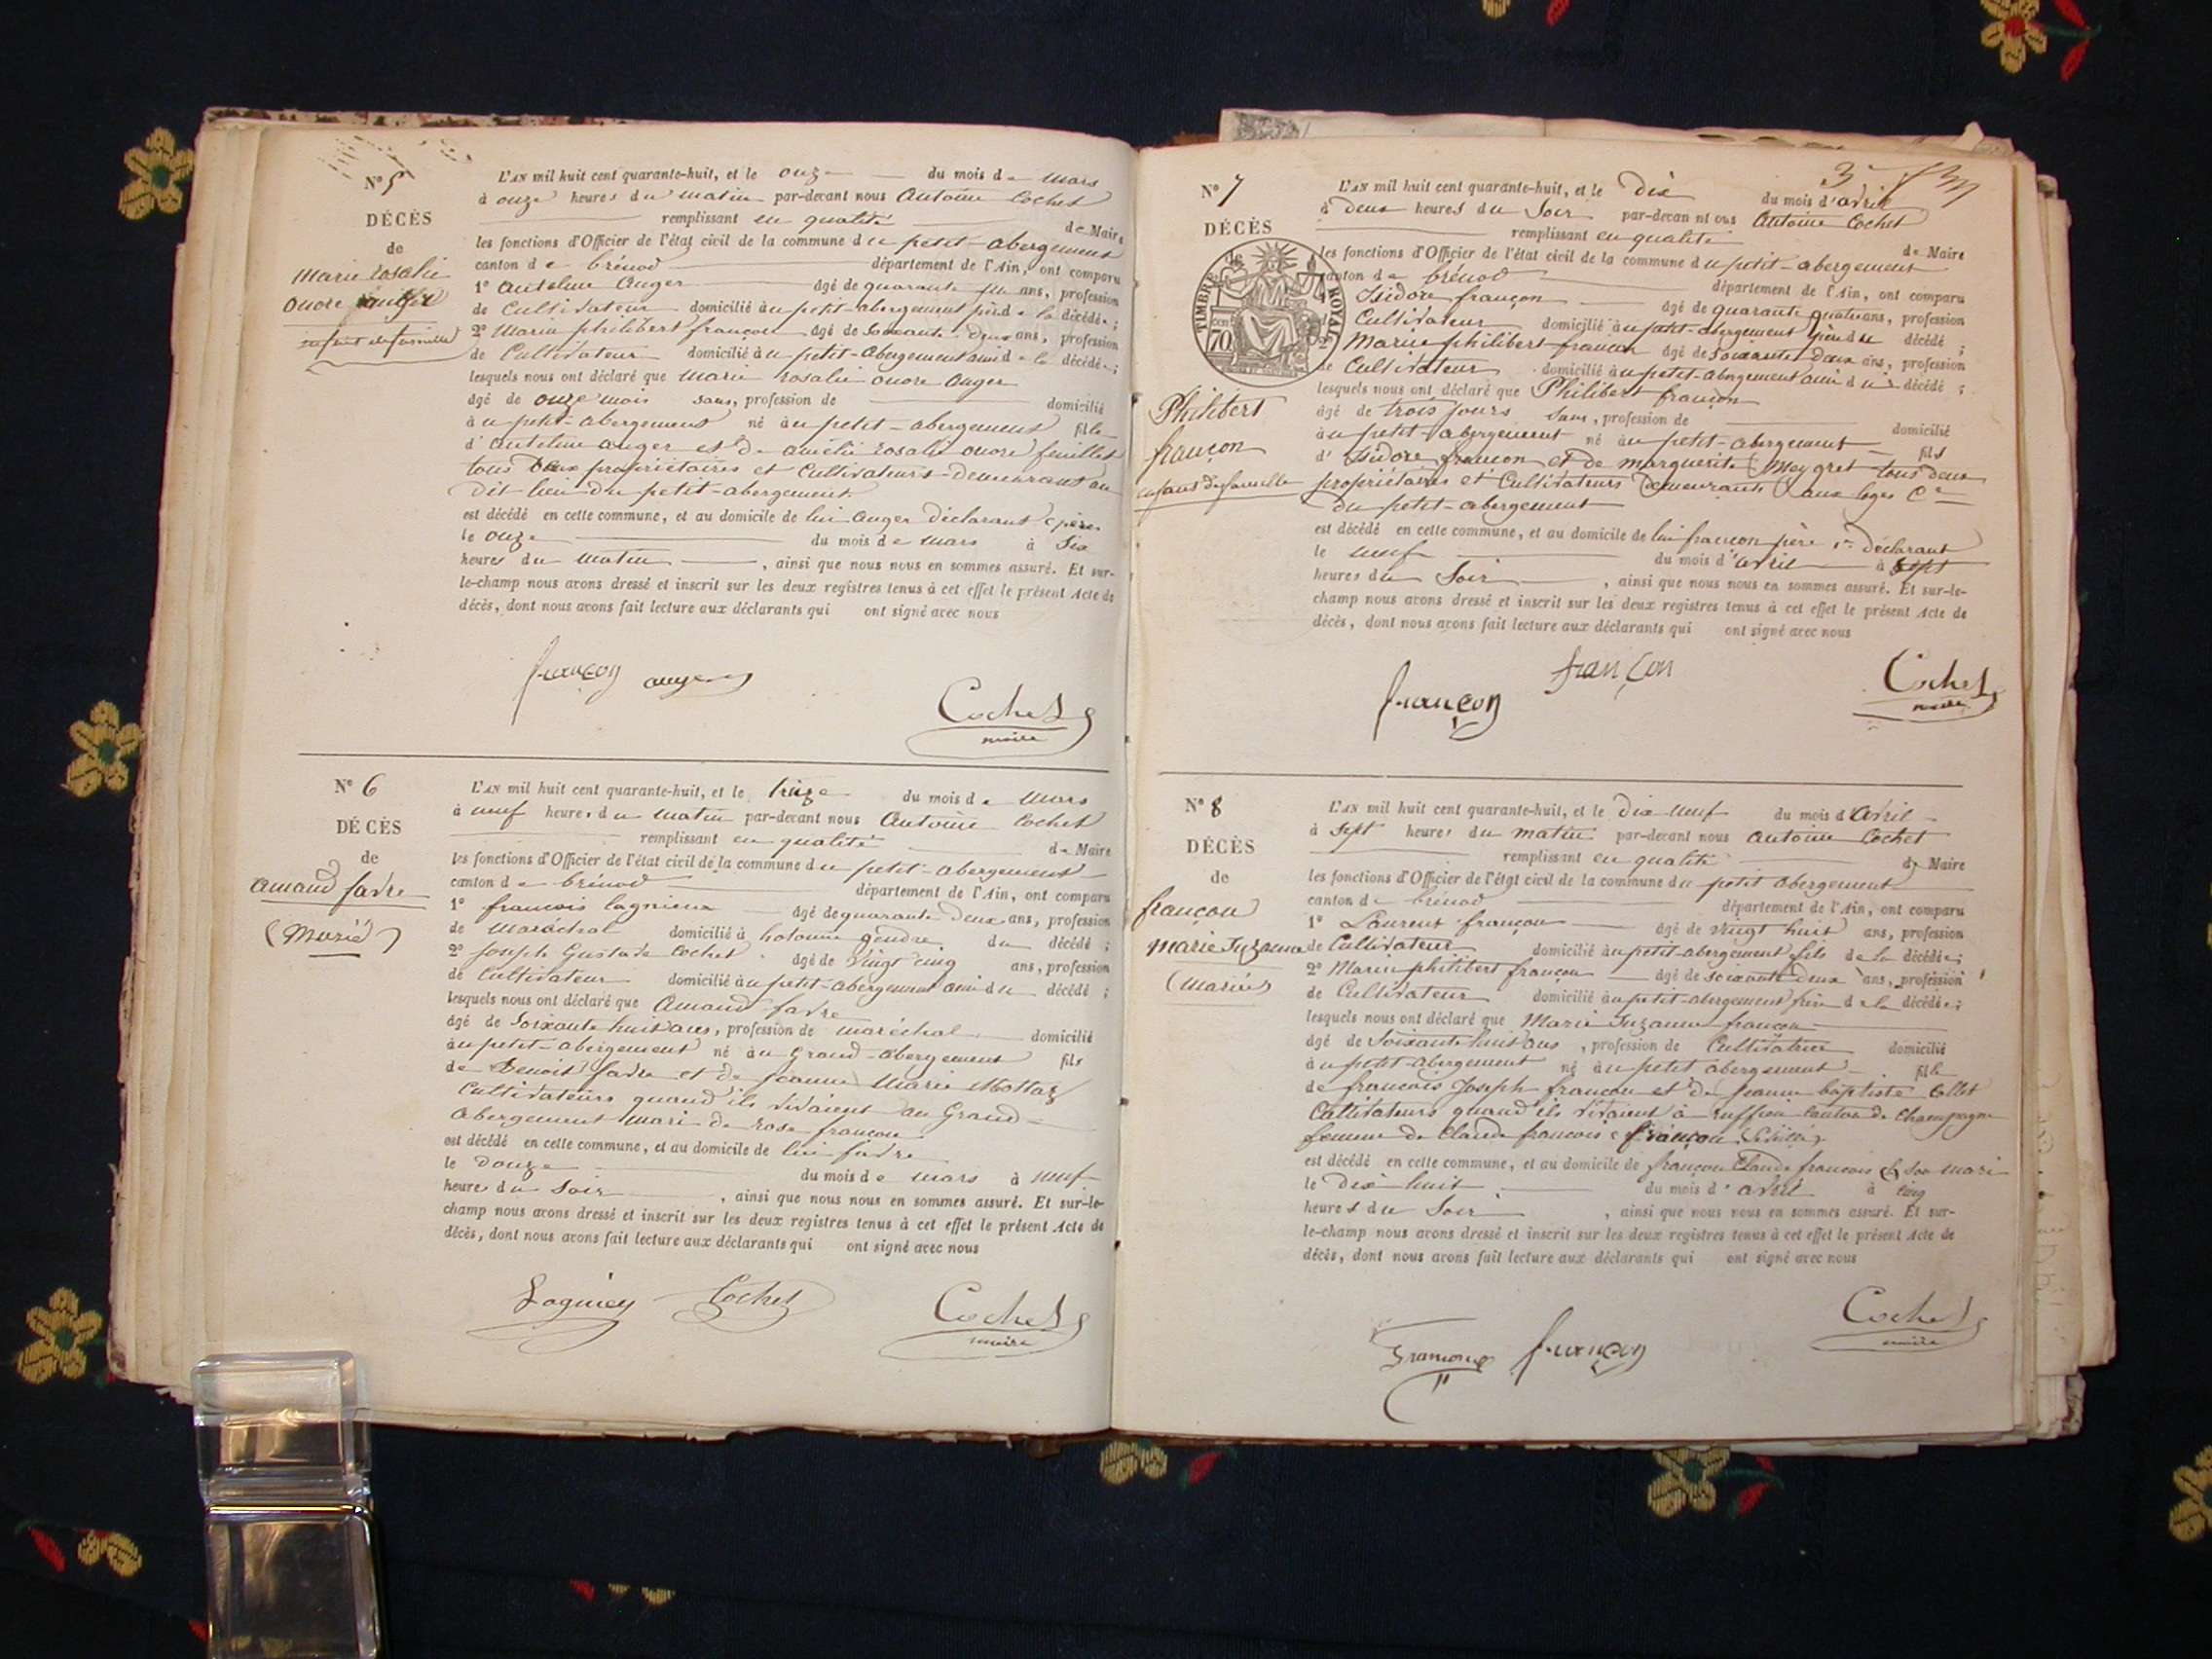 N° 5
DÉCÈS
de
Marie rosalie
onore
enfant de famille
L'AN mil huit cent quarante-huit, et le onze du mois de Mars
à onze heures du matin par-devant nous Antoine Cochet
remplissant en qualité de Maire
les fonctions d'Officier de l'état civil de la commune du petit-abergement
canton de brénod département de l'Ain, ont comparu
1° Antelme Auger âgé de quarante ans, profession
de Cultivateur domicilié au petit-abergement père de la décédée;
2° Marin philibert françon âgé de Soixante Deux ans, profession
de Cultivateur domicilié au petit-abergement ami de la décédée;
lesquels nous ont déclaré que Marie rosalie onore Auger
âgé de onze mois sans, profession de domicilié
au petit-abergement né au petit-abergement fille
d'antelme auger et de amélie rosalie onore feuillet
tous deux propriétaires et Cultivateurs Demeurant au
Dit lieu du petit-abergement
est décédé en cette commune, et au domicile de lui auger Déclarant père
le onze du mois de Mars à Six
heures du matin, ainsi que nous nous en sommes assuré. Et sur-
le-champ nous avons dressé et inscrit sur les deux registres tenus à cet effet le présent Acte de
décès, dont nous avons fait lecture aux déclarants qui ont signé avec nous
françon auger
Cochet
maire
N° 6
DÉCÈS
de
Amand favre
(Marié)
L'AN mil huit cent quarante-huit, et le treize du mois de Mars
à neuf heures du matin par-devant nous Antoine Cochet
remplissant en qualité de Maire
les fonctions d'Officier de l'état civil de la commune du petit-abergement
canton de brénod département de l'Ain, ont comparu
1° françois lagnieux âgé de quarante Deux ans, profession
de Maréchal domicilié à hotonne gendre du décédé;
2° Joseph Gustave Cochet âgé de Vingt cinq ans, profession
de Cultivateur domicilié au petit-abergement ami du décédé;
lesquels nous ont déclaré que Amand favre
âgé de Soixante huit ans, profession de maréchal domicilié
au petit-abergement né au Grand-abergement fils
de Benoit favre et de Jeanne Marie Mottaz
Cultivateurs quand ils vivaient au Grand-
Abergement Mari de rose françon
est décédé en cette commune, et au domicile de lui favre
le Douze du mois de mars à neuf
heures du Soir, ainsi que nous nous en sommes assuré. Et sur-le-
champ nous avons dressé et inscrit sur les deux registres tenus à cet effet le présent Acte de
décès, dont nous avons fait lecture aux déclarants qui ont signé avec nous
Cochet
Cochet
maire
3
N° 7
DÉCÈS
TIMBRE ROYAL
70
Philibert
françon
enfant de famille
L'AN mil huit cent quarante-huit, et le Dix du mois d'avril
à Deux heures du Soir par-devant nous Antoine Cochet
remplissant en qualité de Maire
les fonctions d'Officier de l'état civil de la commune du petit-abergement
canton de brénod département de l'Ain, ont comparu
Isidore françon âgé de quarante quatre ans, profession
Cultivateur domicilié au petit-abergement père du décédé;
Marin philibert françon âgé de Soixante Deux ans, profession
de Cultivateur domicilié au petit-abergement ami du décédé;
lesquels nous ont déclaré que Philibert françon
âgé de trois jours sans, profession de domicilié
au petit-abergement né au petit-abergement fils
d'Isidore françon et de marguerite Meygret tous deux
propriétaires et Cultivateurs Demeurants aux loges Cne
Du petit-abergement
est décédé en cette commune, et au domicile de lui françon père 1er Déclarant
le neuf du mois d'avril à Sept
heures du Soir, ainsi que nous nous en sommes assuré. Et sur-le-
champ nous avons dressé et inscrit sur les deux registres tenus à cet effet le présent Acte de
décès, dont nous avons fait lecture aux déclarants qui ont signé avec nous
françon françon
Cochet
maire
N° 8
DÉCÈS
de
françon
Marie Suzanne
(Mariée)
L'AN mil huit cent quarante-huit, et le Dix neuf du mois d'Avril
à Sept heures du matin par-devant nous Antoine Cochet
remplissant en qualité de Maire
les fonctions d'Officier de l'état civil de la commune du petit abergement
canton de brénod département de l'Ain, ont comparu
1° Laurent françon âgé de Vingt huit ans, profession
de Cultivateur domicilié au petit-abergement fils de la décédée;
2° Marin philibert françon âgé de soixante Deux ans, profession
de Cultivateur domicilié au petit-abergement frère de la décédée;
lesquels nous ont déclaré que Marie Suzanne françon
âgé de Soixante huit ans, profession de Cultivatrice domicilié
au petit-abergement né au petit abergement fille
de françois Joseph françon et de Jeanne baptiste
Cultivateurs quand ils vivaient à ruffieu canton de Champagne
femme de Claude françois françon
est décédé en cette commune, et au domicile de françon Claude françois son mari
le Dix huit du mois d'avril à cinq
heures du Soir, ainsi que nous nous en sommes assuré. Et sur-
le-champ nous avons dressé et inscrit sur les deux registres tenus à cet effet le présent Acte de
décès, dont nous avons fait lecture aux déclarants qui ont signé avec nous
françon
Cochet
maire